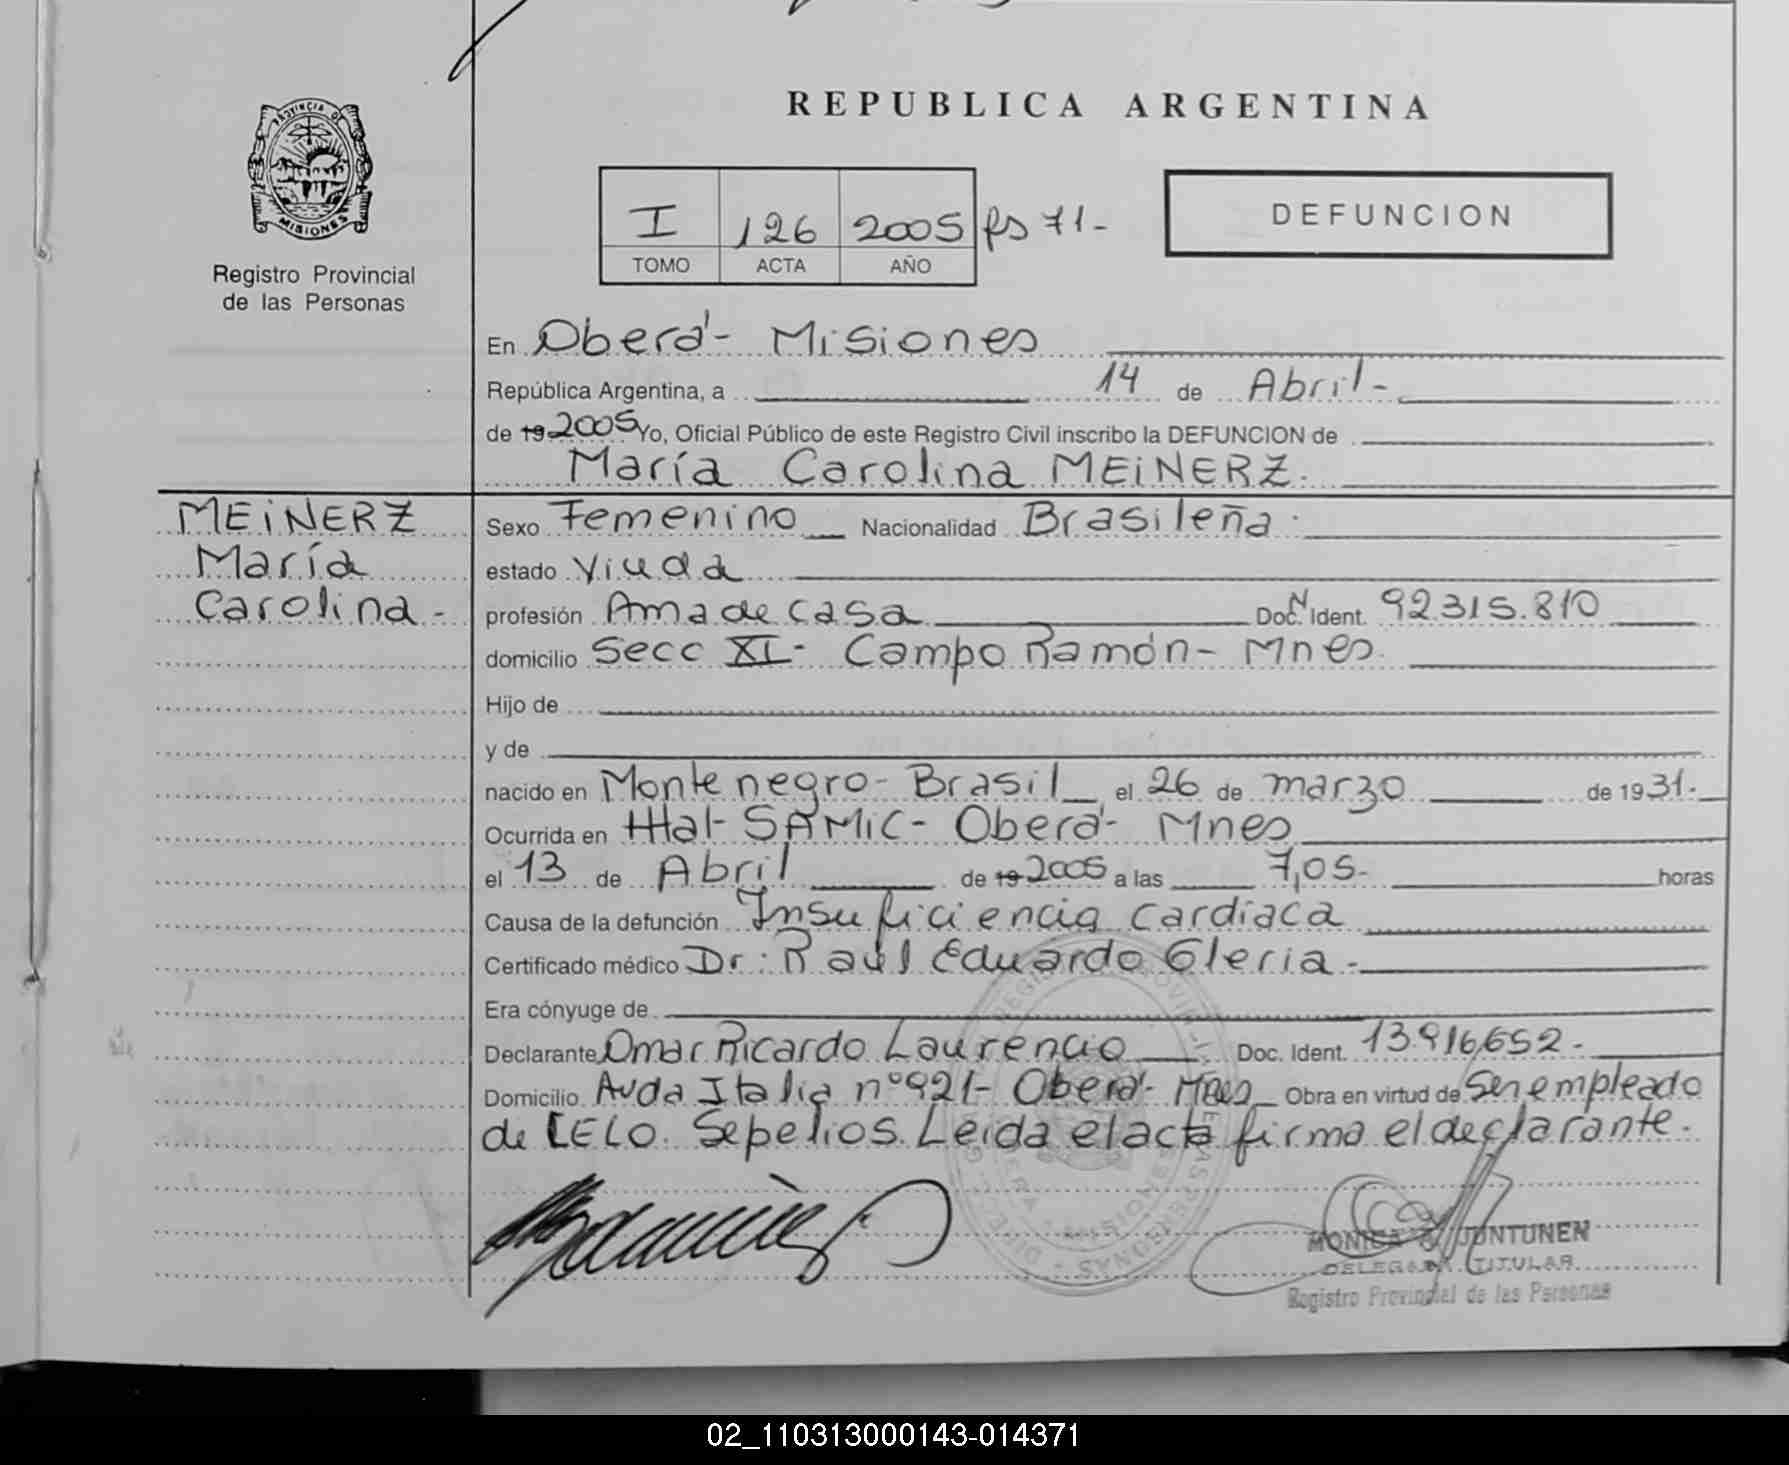 PROVINCIA DE
MISIONES
Registro Provincial
de las Personas
REPUBLICA ARGENTINA
I 126 2005 fs 71-
TOMO ACTA AÑO
DEFUNCION
En Oberá - Misiones
República Argentina, a 14 de Abril -
de 19 2005 Yo, Oficial Público de este Registro Civil inscribo la DEFUNCION de
María Carolina MEiNERZ.
MEiNERZ
María
Carolina -
Sexo Femenino Nacionalidad Brasileña
estado Viuda
profesión Ama de casa Doc. N Ident. 92.315.810
domicilio Secc XI - Campo Ramón - Mnes.
Hijo de
y de
nacido en Montenegro - Brasil el 26 de marzo de 1931.
Ocurrida en Htal - SAMiC - Oberá - Mnes
el 13 de Abril de 19 2005 a las 7,05- horas
Causa de la defunción Insuficiencia cardiaca
Certificado médico Dr: Raúl Eduardo Gleria -
Era cónyuge de
Declarante Omar Ricardo Laurencio Doc. Ident. 13916652 -
Domicilio Avda Italia nº 921 - Oberá - Mnes Obra en virtud de Ser empleado
de CELO. Sepelios. Leida el acta firma el declarante.
MONICA JUNTUNEN
DELEGADA TITULAR
Registro Provincial de las Personas
02_110313000143-014371